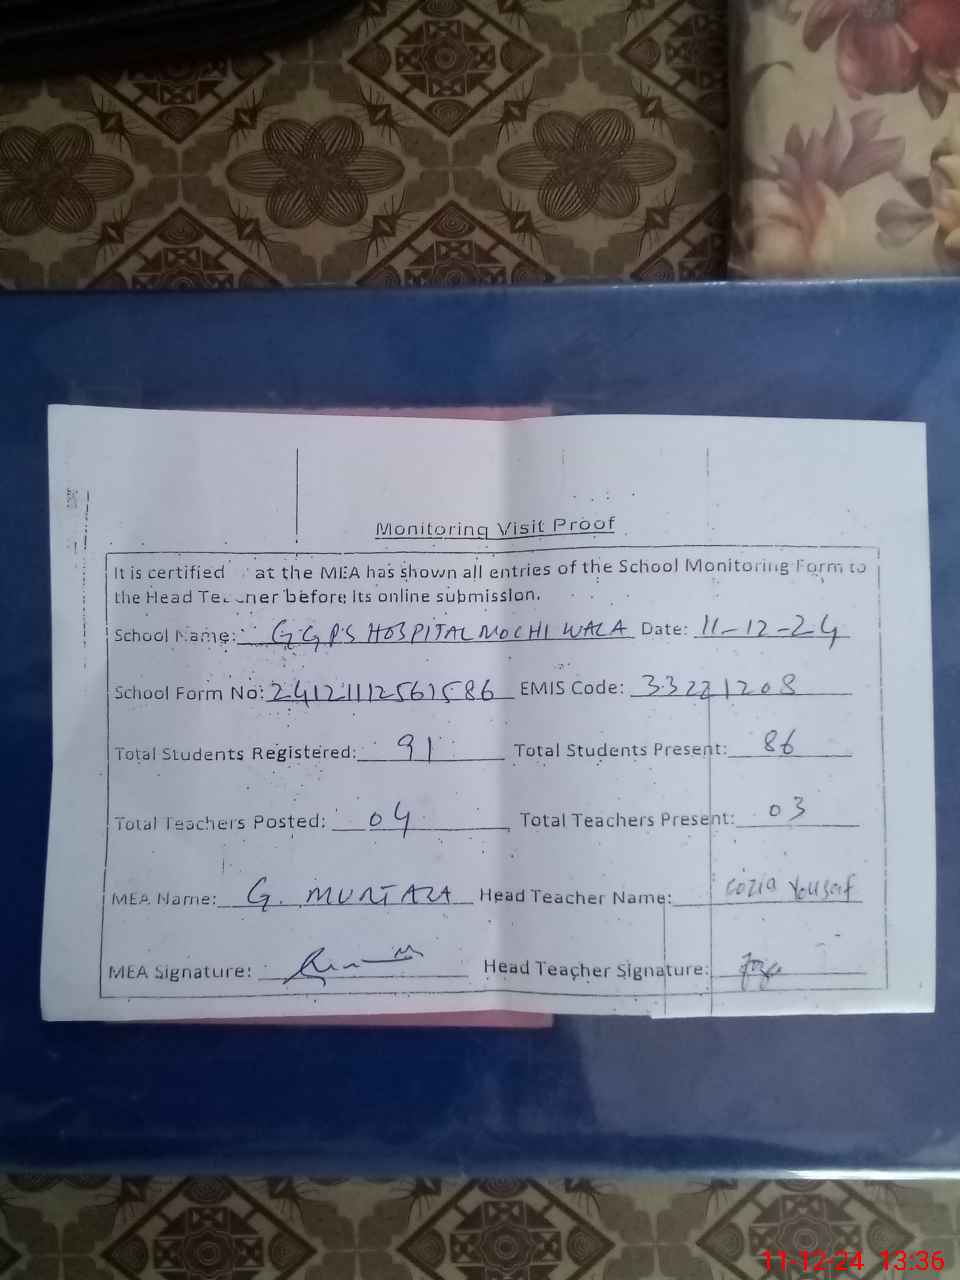 Monitoring Visit Proof
It is certified at the MEA has shown all entries of the School Monitoring Form to
the Head Teacher before its online submission.
School Name: GGPS HOSPITAL MOCHI WALA Date: 11-12-24
School Form No: 24121112561586 EMIS Code: 33221208
Total Students Registered: 91 Total Students Present: 86
Total Teachers Posted: 04 Total Teachers Present: 03
MEA Name: G. MURTAZA Head Teacher Name: Yousaf
MEA Signature: Head Teacher Signature:
11-12-24 13:36